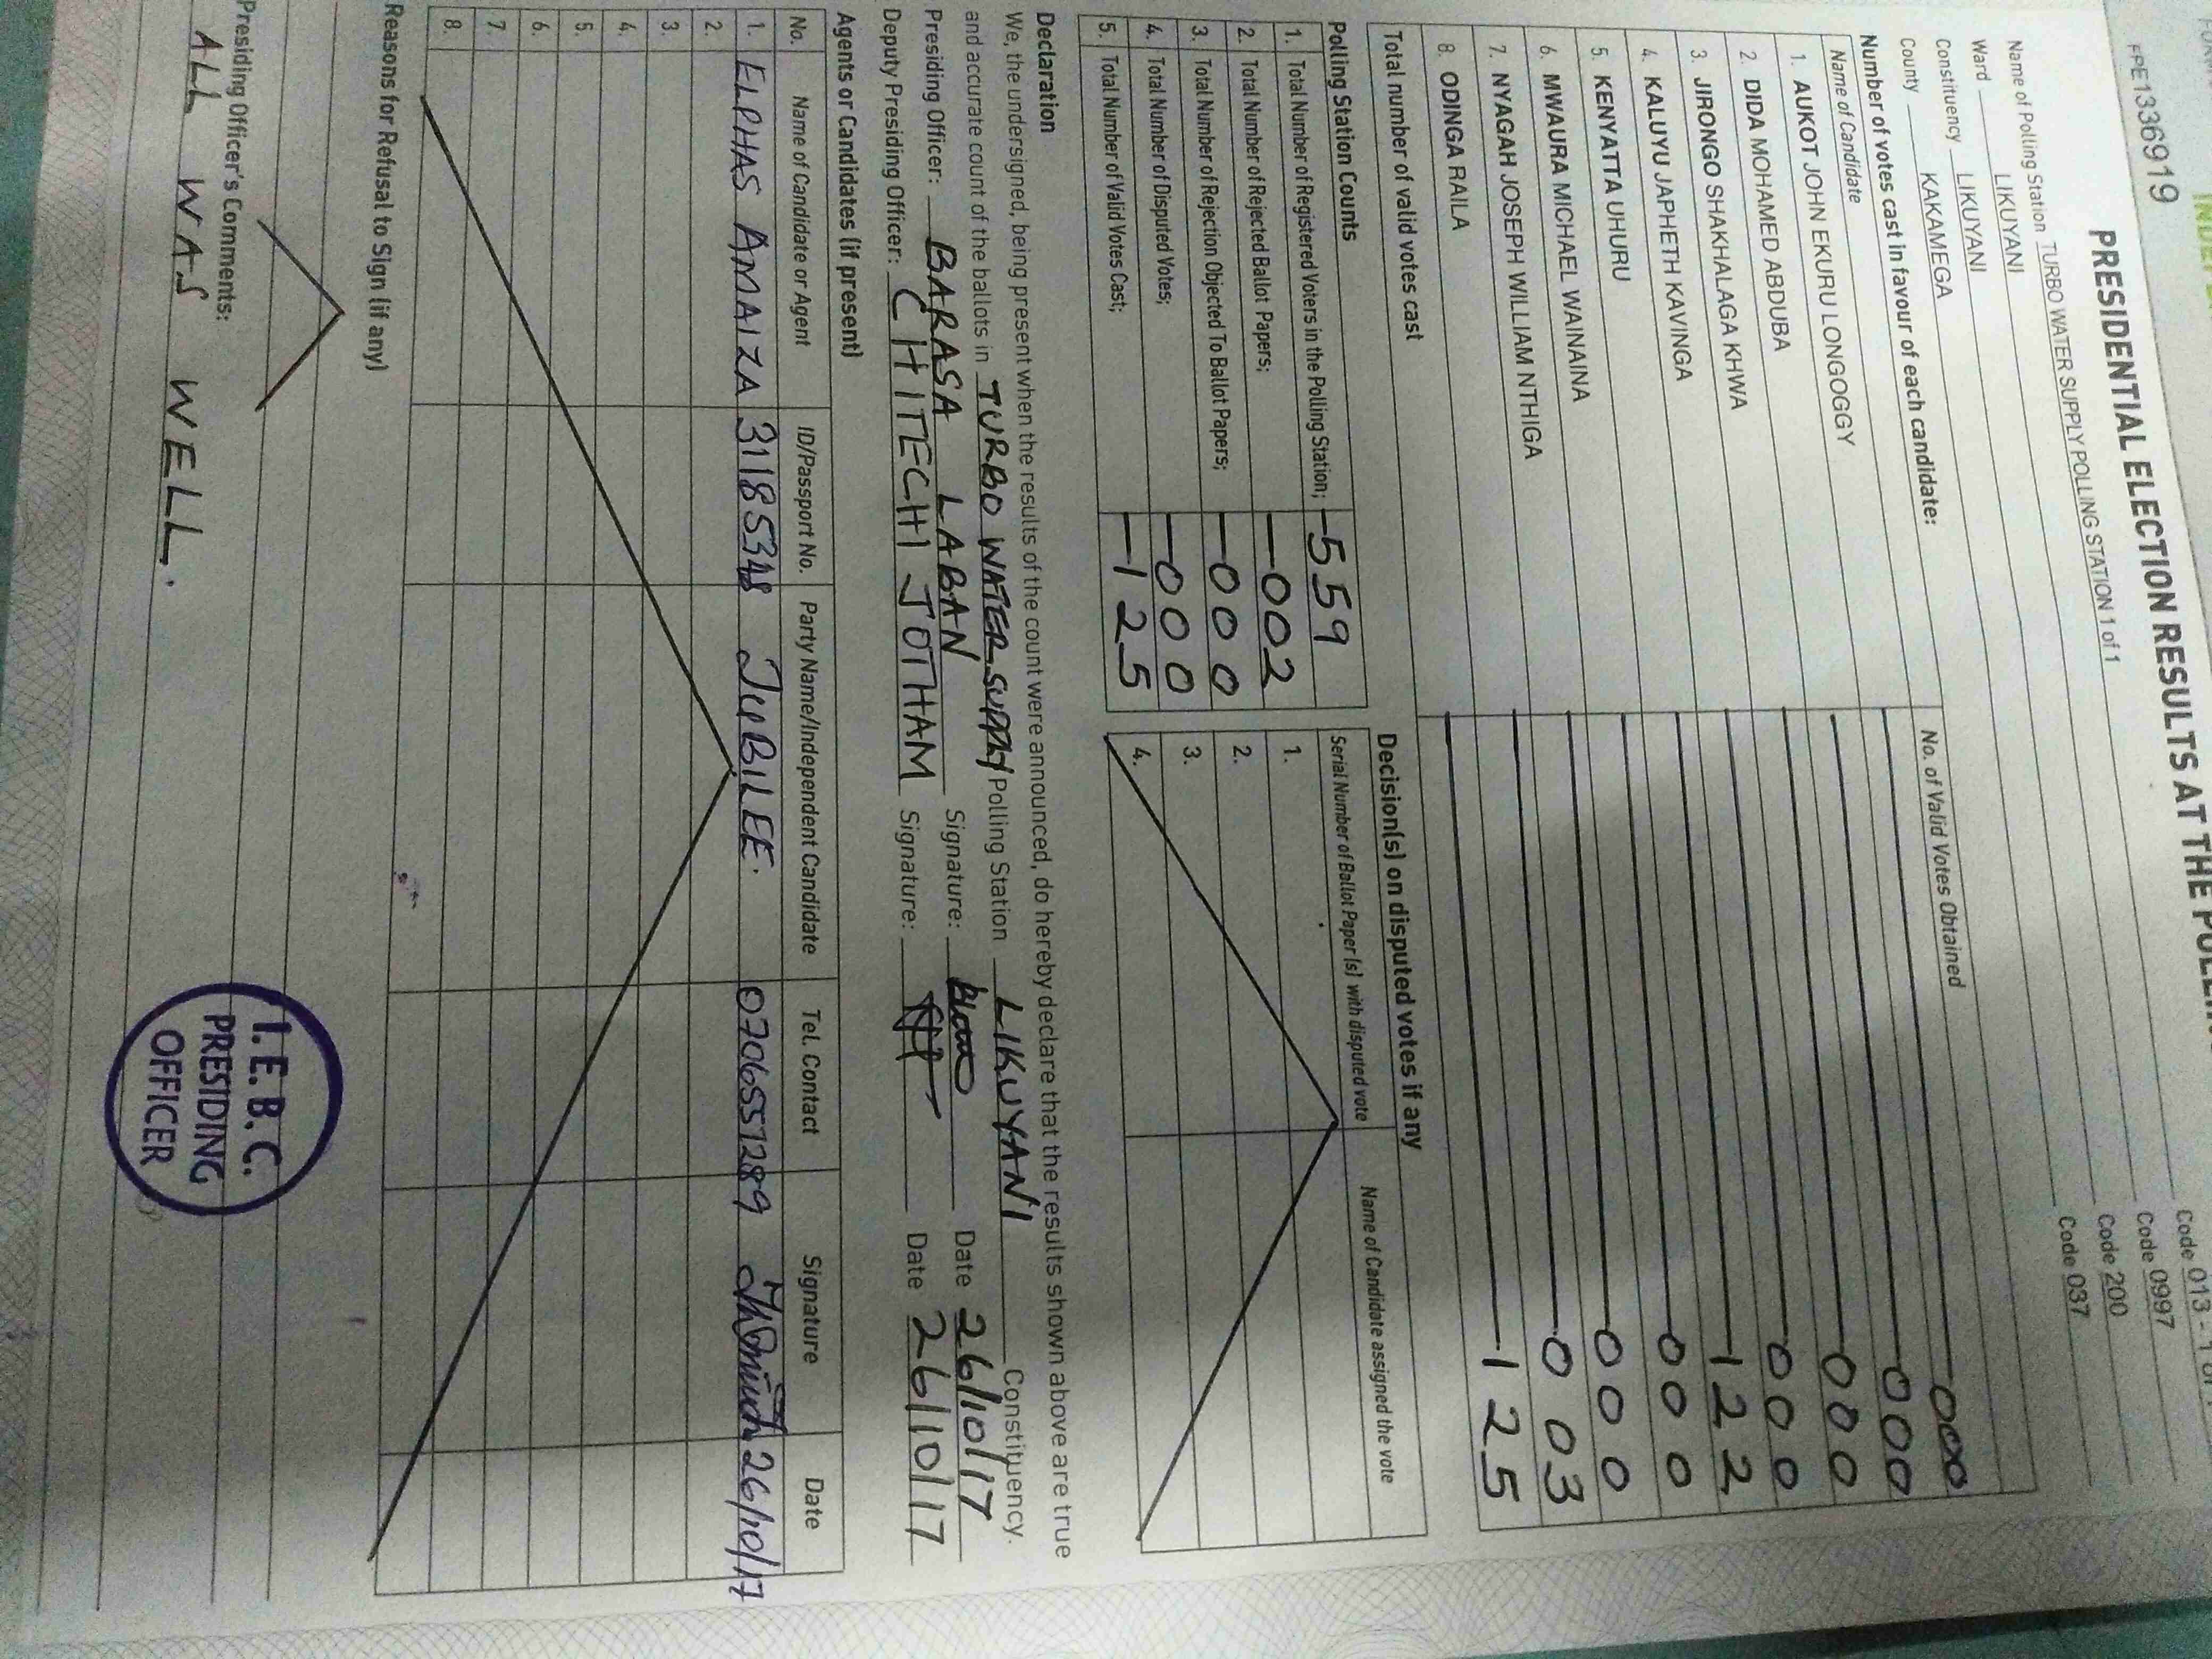 FPE1336919
PRESIDENTIAL ELECTION RESULTS AT THE
Name of Polling Station TURBO WATER SUPPLY POLLING STATION 1 of 1
Ward LIKUYANI Code 0997
Constituency LIKUYANI Code 200
County KAKAMEGA Code 037
Number of votes cast in favour of each candidate:
Name of Candidate No. of Valid Votes Obtained
1. AUKOT JOHN EKURU LONGOGGY 000
2. DIDA MOHAMED ABDUBA 000
3. JIRONGO SHAKHALAGA KHWA 000
4. KALUYU JAPHETH KAVINGA 000
5. KENYATTA UHURU 122
6. MWAURA MICHAEL WAINAINA 000
7. NYAGAH JOSEPH WILLIAM NTHIGA 000
8. ODINGA RAILA 003
Total number of valid votes cast 125
Polling Station Counts
1. Total Number of Registered Voters in the Polling Station; 559
2. Total Number of Rejected Ballot Papers; 002
3. Total Number of Rejection Objected To Ballot Papers; 000
4. Total Number of Disputed Votes; 000
5. Total Number of Valid Votes Cast; 125
Decision(s) on disputed votes if any
Serial Number of Ballot Paper (s) with disputed vote Name of Candidate assigned the vote
1.
2.
3.
4.
Declaration
We, the undersigned, being present when the results of the count were announced, do hereby declare that the results shown above are true
and accurate count of the ballots in TURBO WATER SUPPLY Polling Station LIKUYANI Constituency.
Presiding Officer: BARASA LABAN Signature: Date 26/10/17
Deputy Presiding Officer: CHITECHI JOTHAM Signature: Date 26/10/17
Agents or Candidates (if present)
No. Name of Candidate or Agent ID/Passport No. Party Name/Independent Candidate Tel. Contact Signature Date
1. ELPHAS AMAIZA 31185348 JUBILEE. 0706551289 26/10/17
2.
3.
4.
5.
6.
7.
8.
Reasons for Refusal to Sign (if any)
Presiding Officer's Comments:
ALL WAS WELL.
I.E.B.C.
PRESIDING
OFFICER